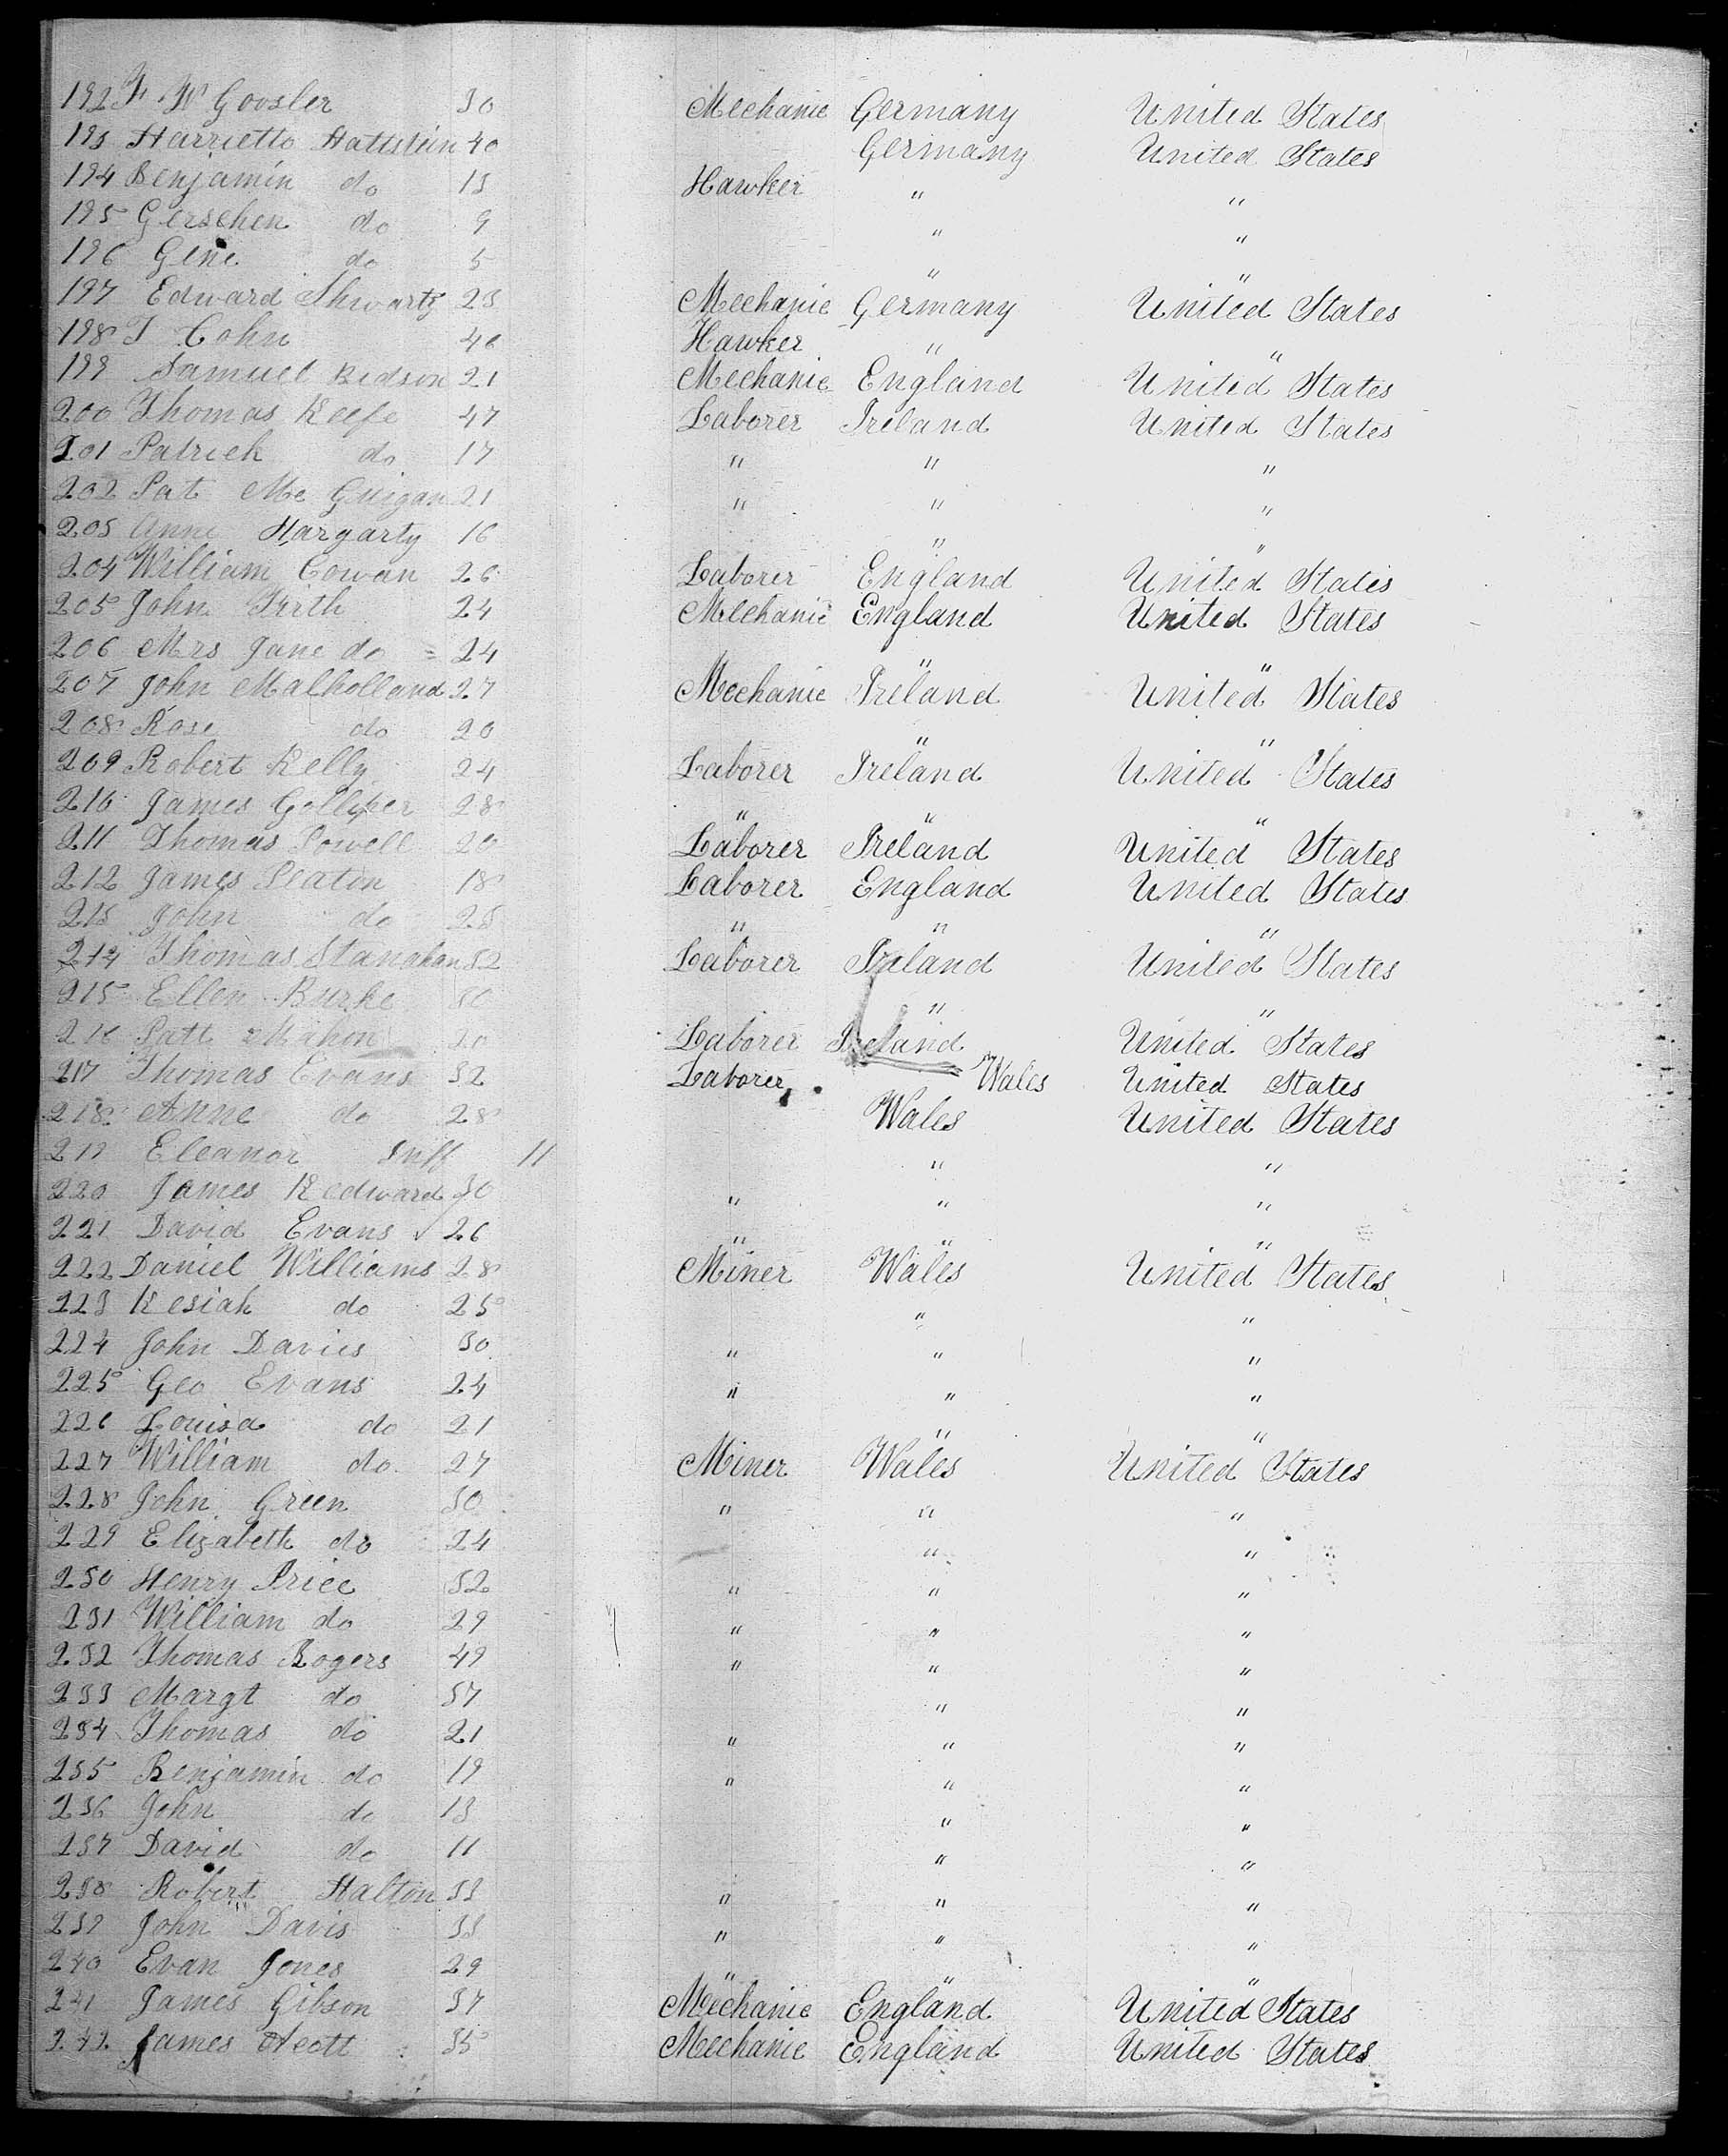 192 F. W Goosler 30 Mechanic Germany United States
193 Harrietto Hattstein 40 Germany United States
194 Benjamin do 13 Hawker " "
195 Gerschen do 9 " "
196 Gene do 5 " "
197 Edward Shwartz 23 Mechanic Germany United States
198 T Cohn 46 Hawker " "
199 Samuel Kidson 21 Mechanic England United States
200 Thomas Keefe 47 Laborer Ireland United States
201 Patrick do 17 " " "
202 Pat Mc Guigan 21 " " "
203 Anne Hargarty 16 " "
204 William Cowan 26 Laborer England United States
205 John Firth 24 Mechanic England United States
206 Mrs Jane do = 24 " "
207 John Malholland 27 Mechanic Ireland United States
208 Rose do 20 " "
209 Robert Kelly 24 Laborer Ireland United States
210 James Golliker 28 " " "
211 Thomas Powell 20 Laborer Ireland United States
212 James Seaton 18 Laborer England United States
213 John do 23 " " "
214 Thomas Stanahan 32 Laborer Ireland United States
215 Ellen Burke 30 " "
216 Patt Mahon 20 Laborer Ireland United States
217 Thomas Evans 32 Laborer Wales United States
218 Anne do 28 Wales United States
219 Eleanor Inff 11 " "
220 James Kedward 30 " " "
221 David Evans 26 " " "
222 Daniel Williams 28 Miner Wales United States
223 Kesiah do 25 " "
224 John Davies 30 " " "
225 Geo Evans 24 " " "
226 Louisa do 21 " "
227 William do 27 Miner Wales United States
228 John Green 30 " " "
229 Elizabeth do 24 " "
230 Henry Price 32 " " "
231 William do 29 " " "
232 Thomas Rogers 49 " " "
233 Margt do 37 " "
234 Thomas do 21 " " "
235 Benjamin do 19 " " "
236 John do 13 " "
237 David do 11 " "
238 Robert Halton 33 " " "
239 John Davis 33 " " "
240 Evan Jones 29 " " "
241 James Gibson 37 Mechanic England United States
242 James Scott 35 Mechanic England United States